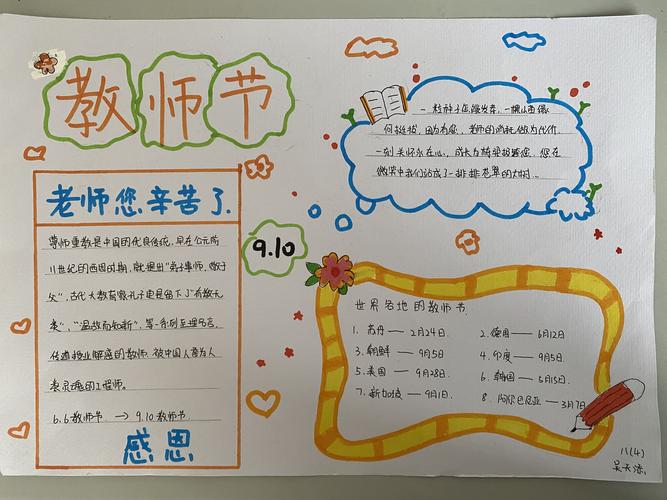 教师节
老师您辛苦了.
尊师重教是中国的优良传统,早在公元前
11世纪的西周时期,就提出"弟子事师,敬于
父",古代大教育家孔子更是留下了"有教无
类","温故而知新",等一系列至理名言,
传道授业解惑的教师,被中国人誉为人
类灵魂的工程师。
6.6教师节 → 9.10教师节
感恩
9.10
一粒种子在
何挺拔,因为有您,老师的消耗做为代价,
一刻关怀永在心,成长为
微笑中我们站成了一排排葱翠的大树...
世界各地的教师节
1. 苏丹 — 2月24日.
2. 德国 — 6月12日
3. 朝鲜 — 9月5日
4. 印度 — 9月5日.
5. 美国 — 9月28日.
6. 韩国 — 5月15日.
7. 新加坡 — 9月1日.
8. 阿尔巴尼亚 — 3月7日
八(4)
吴天添